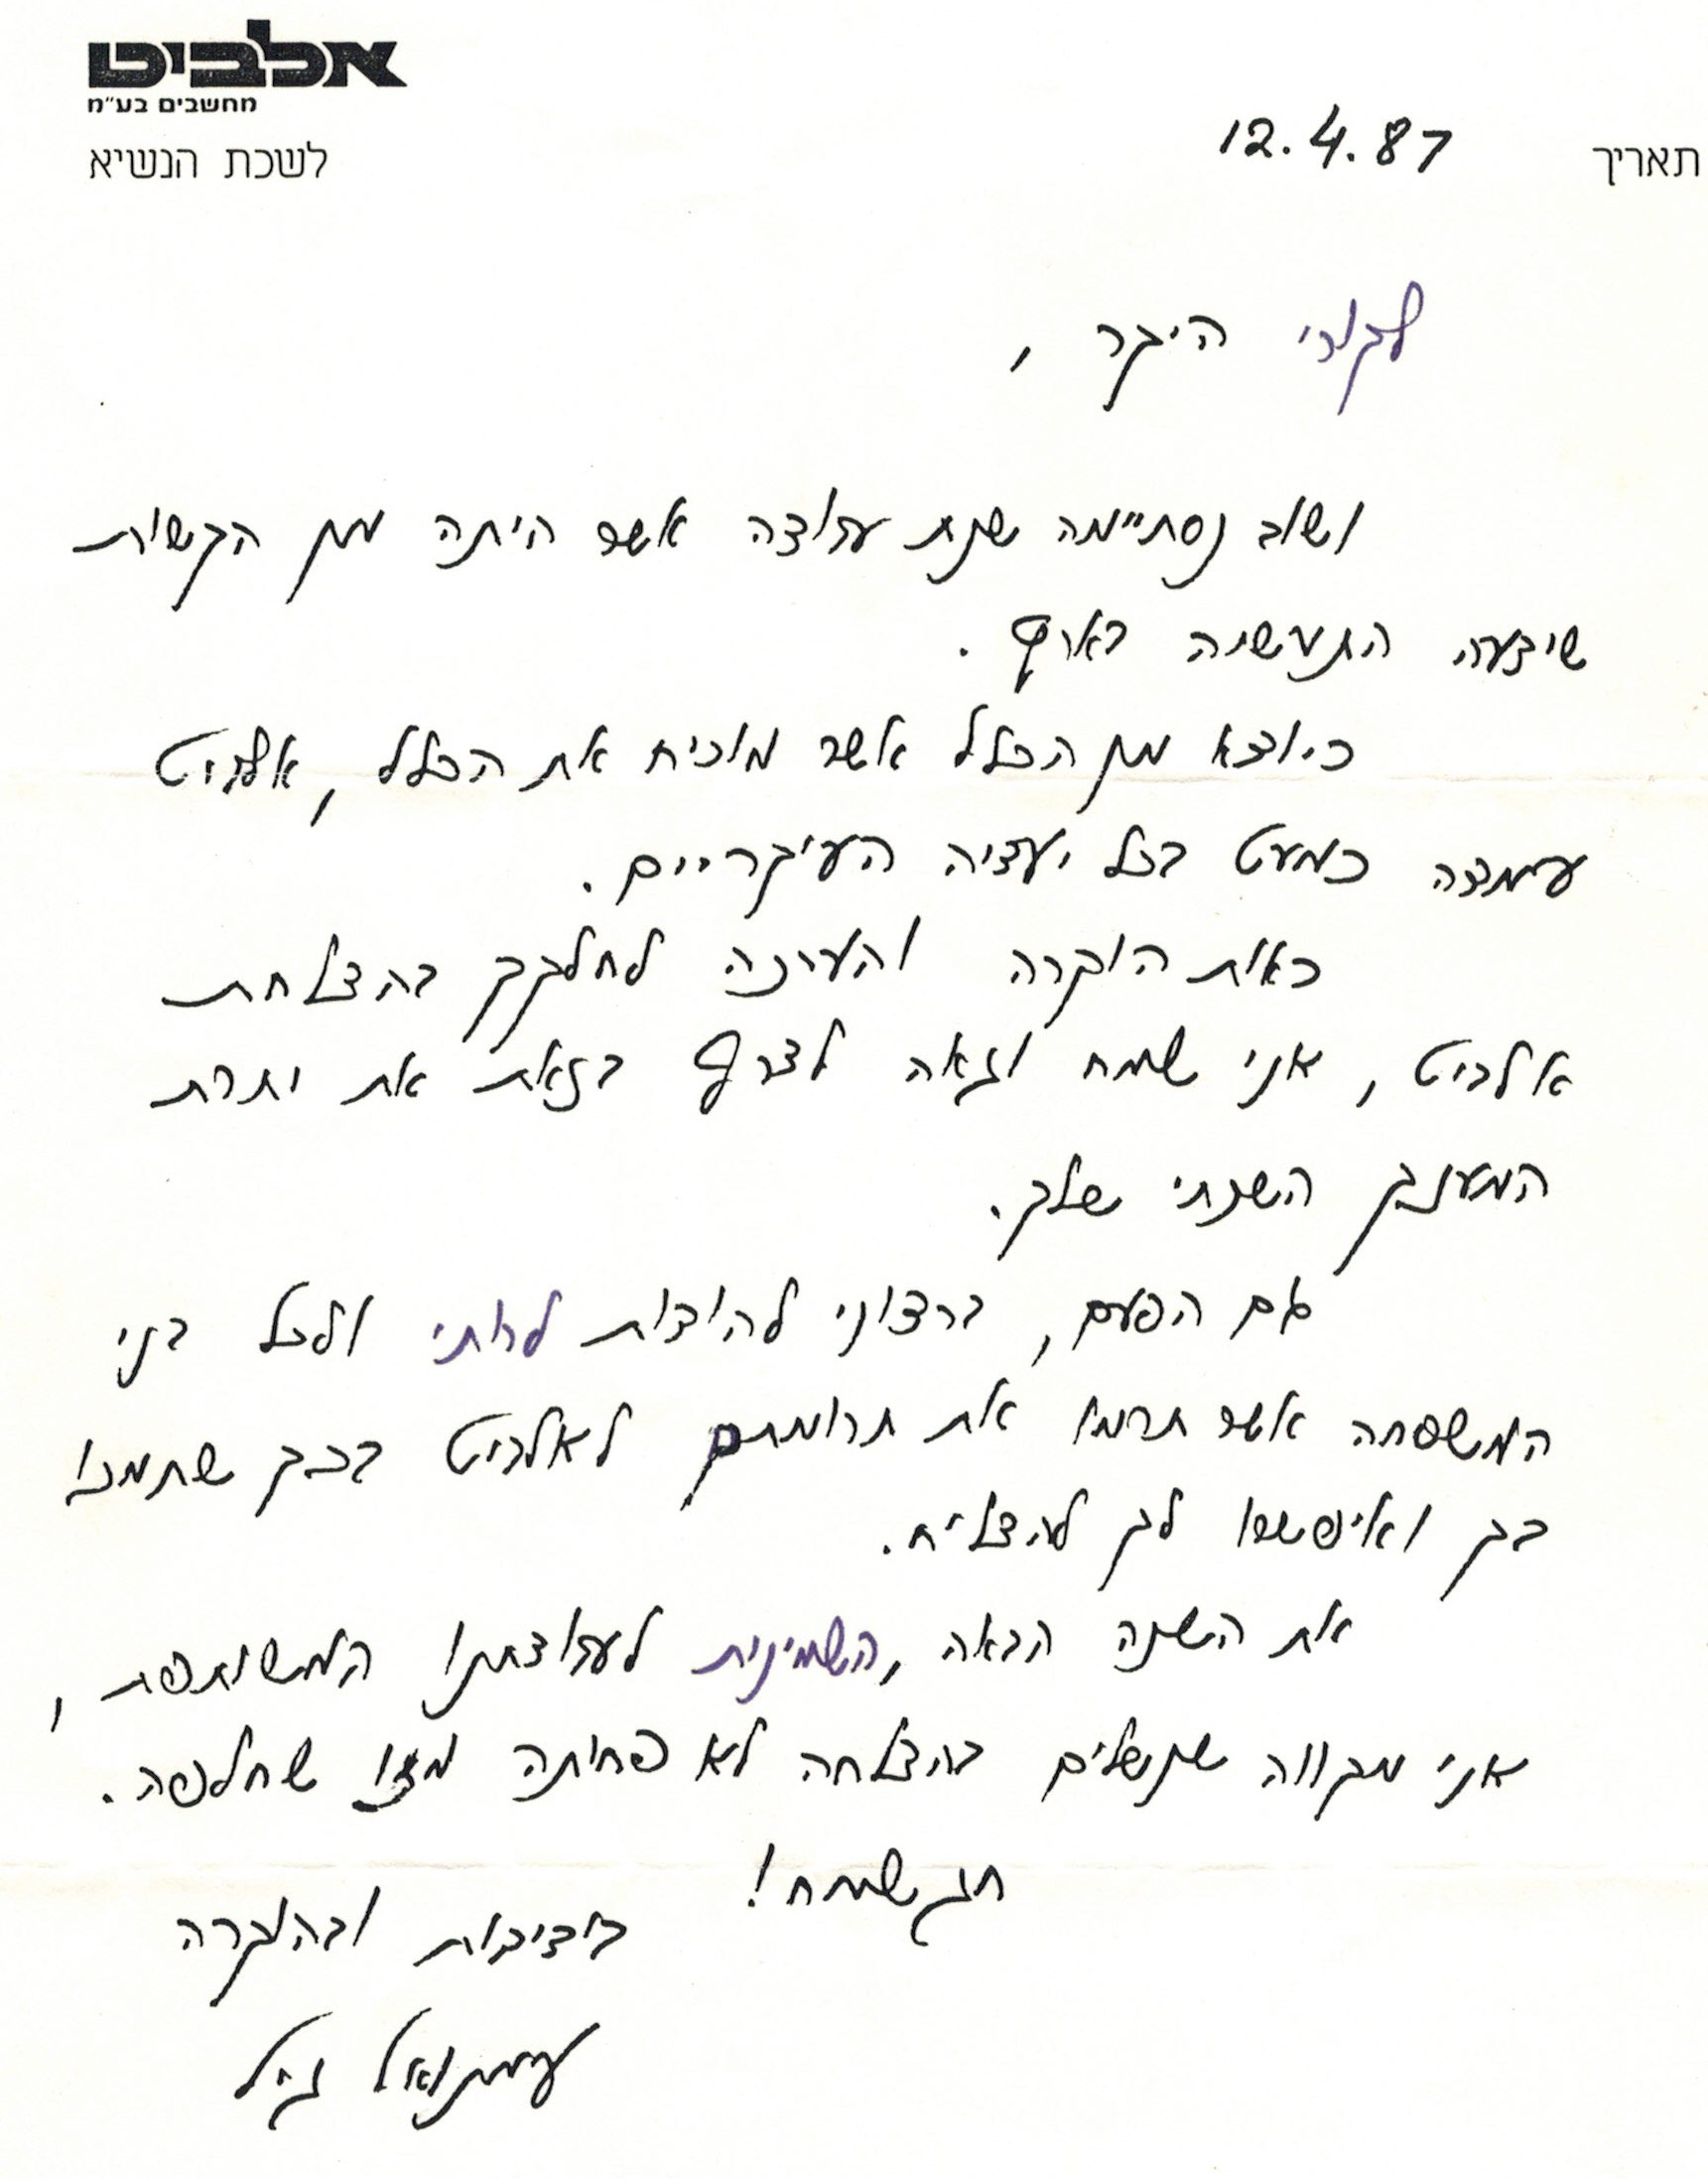 אלביט
מחשבים בע"מ
לשכת הנשיא
תאריך 12.4.87
היקר,
ושוב נסתיימה שנת עבודה אשר היתה מן הקשות
שידעה התעשיה בארץ.
כיוצא מן הכלל אשר מוכיח את הכלל, אלביט
עמדה כמעט בכל יעדיה העיקריים.
כאות הוקרה והערכה לחלקך בהצלחת
אלביט, אני שמח וגאה לצרף בזאת את יתרת
המענק השנתי שלך.
גם הפעם, ברצוני להודות לרותי ולכל בני
המשפחה אשר תרמו את תרומתם לאלביט בכך שתמכו
בך ואיפשרו לך להצליח.
את השנה הבאה, השמינית לעבודתנו המשותפת,
אני מקווה שנשלים בהצלחה לא פחותה מזו שחלפה.
חג שמח!
בידידות ובהוקרה
עמנואל גיל